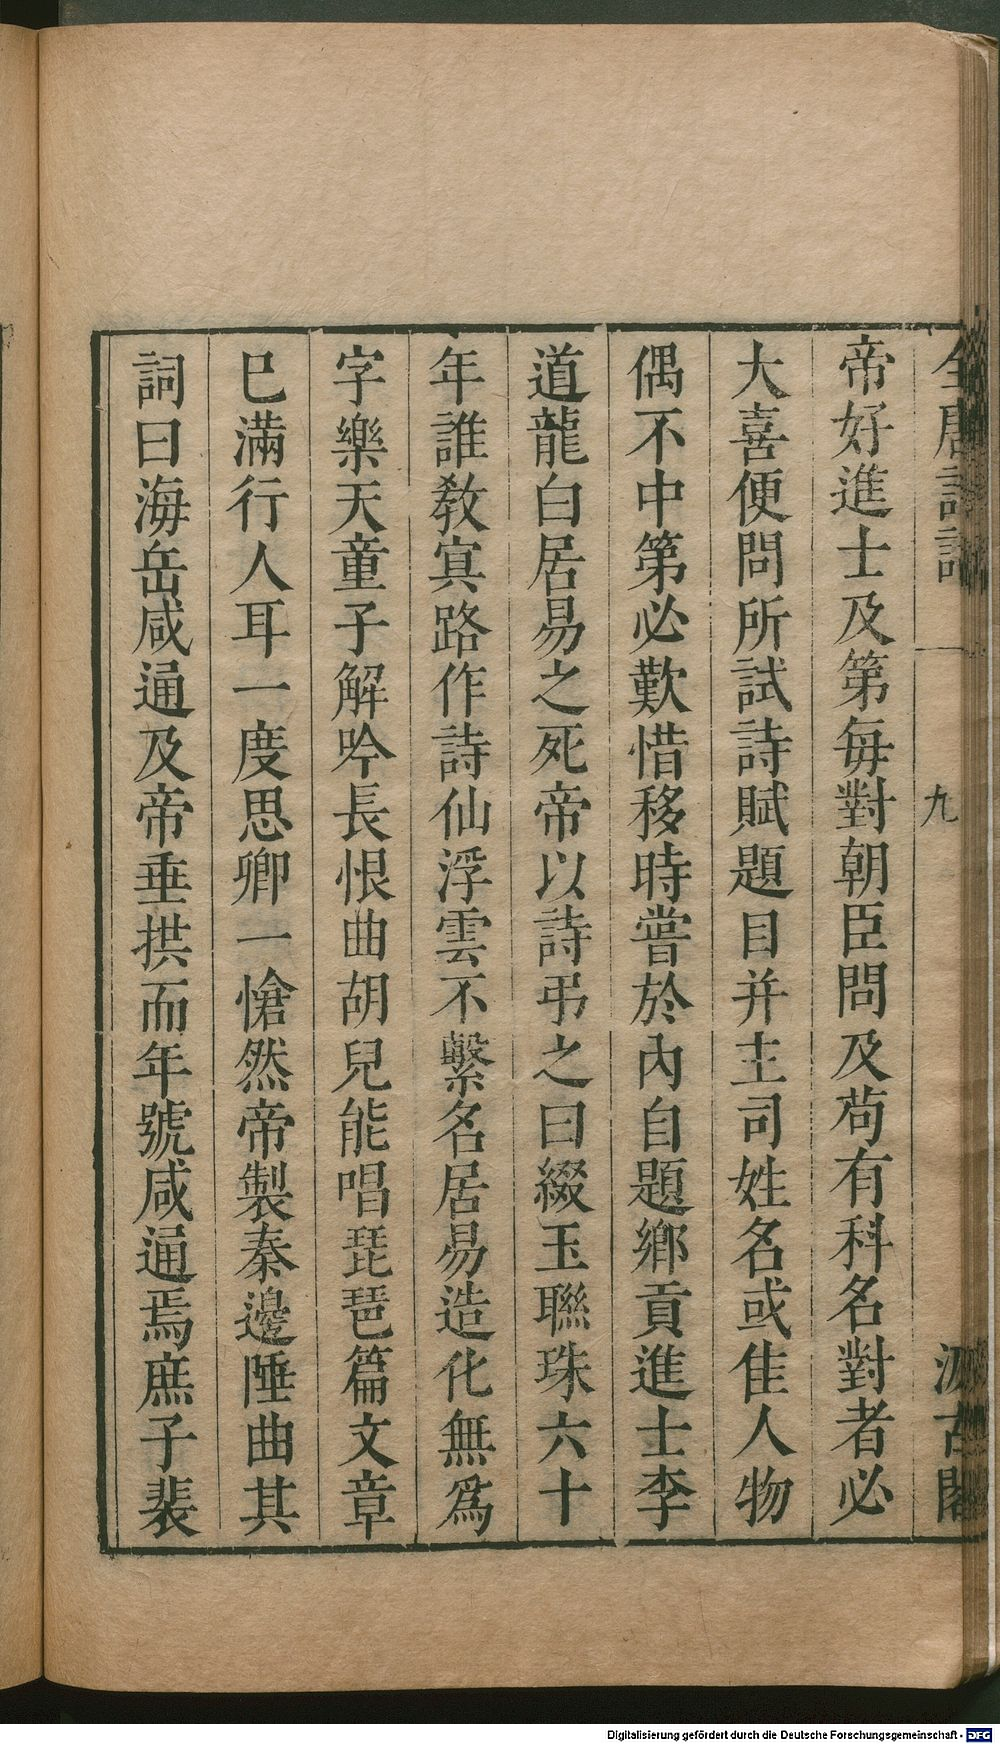 全唐詩話
九
汲古閣
帝好進士及第每對朝臣問及苟有科名對者必
大喜便問所試詩賦題目并主司姓名或佳人物
偶不中第必歎惜移時嘗於內自題鄉貢進士李
道龍白居易之死帝以詩弔之曰綴玉聯珠六十
年誰敎㝠路作詩仙浮雲不繫名居易造化無爲
字樂天童子解吟長恨曲胡兒能唱琵琶篇文章
巳滿行人耳一度思卿一愴然帝製秦邊陲曲其
詞曰海岳咸通及帝垂拱而年號咸通焉庶子裴
Digitalisierung gefördert durch die Deutsche Forschungsgemeinschaft - DFG